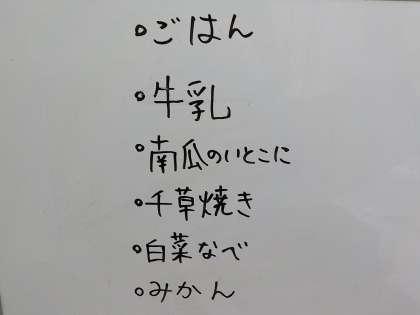 ・ごはん
・牛乳
・南瓜のいとこに
・千草焼き
・白菜なべ
・みかん